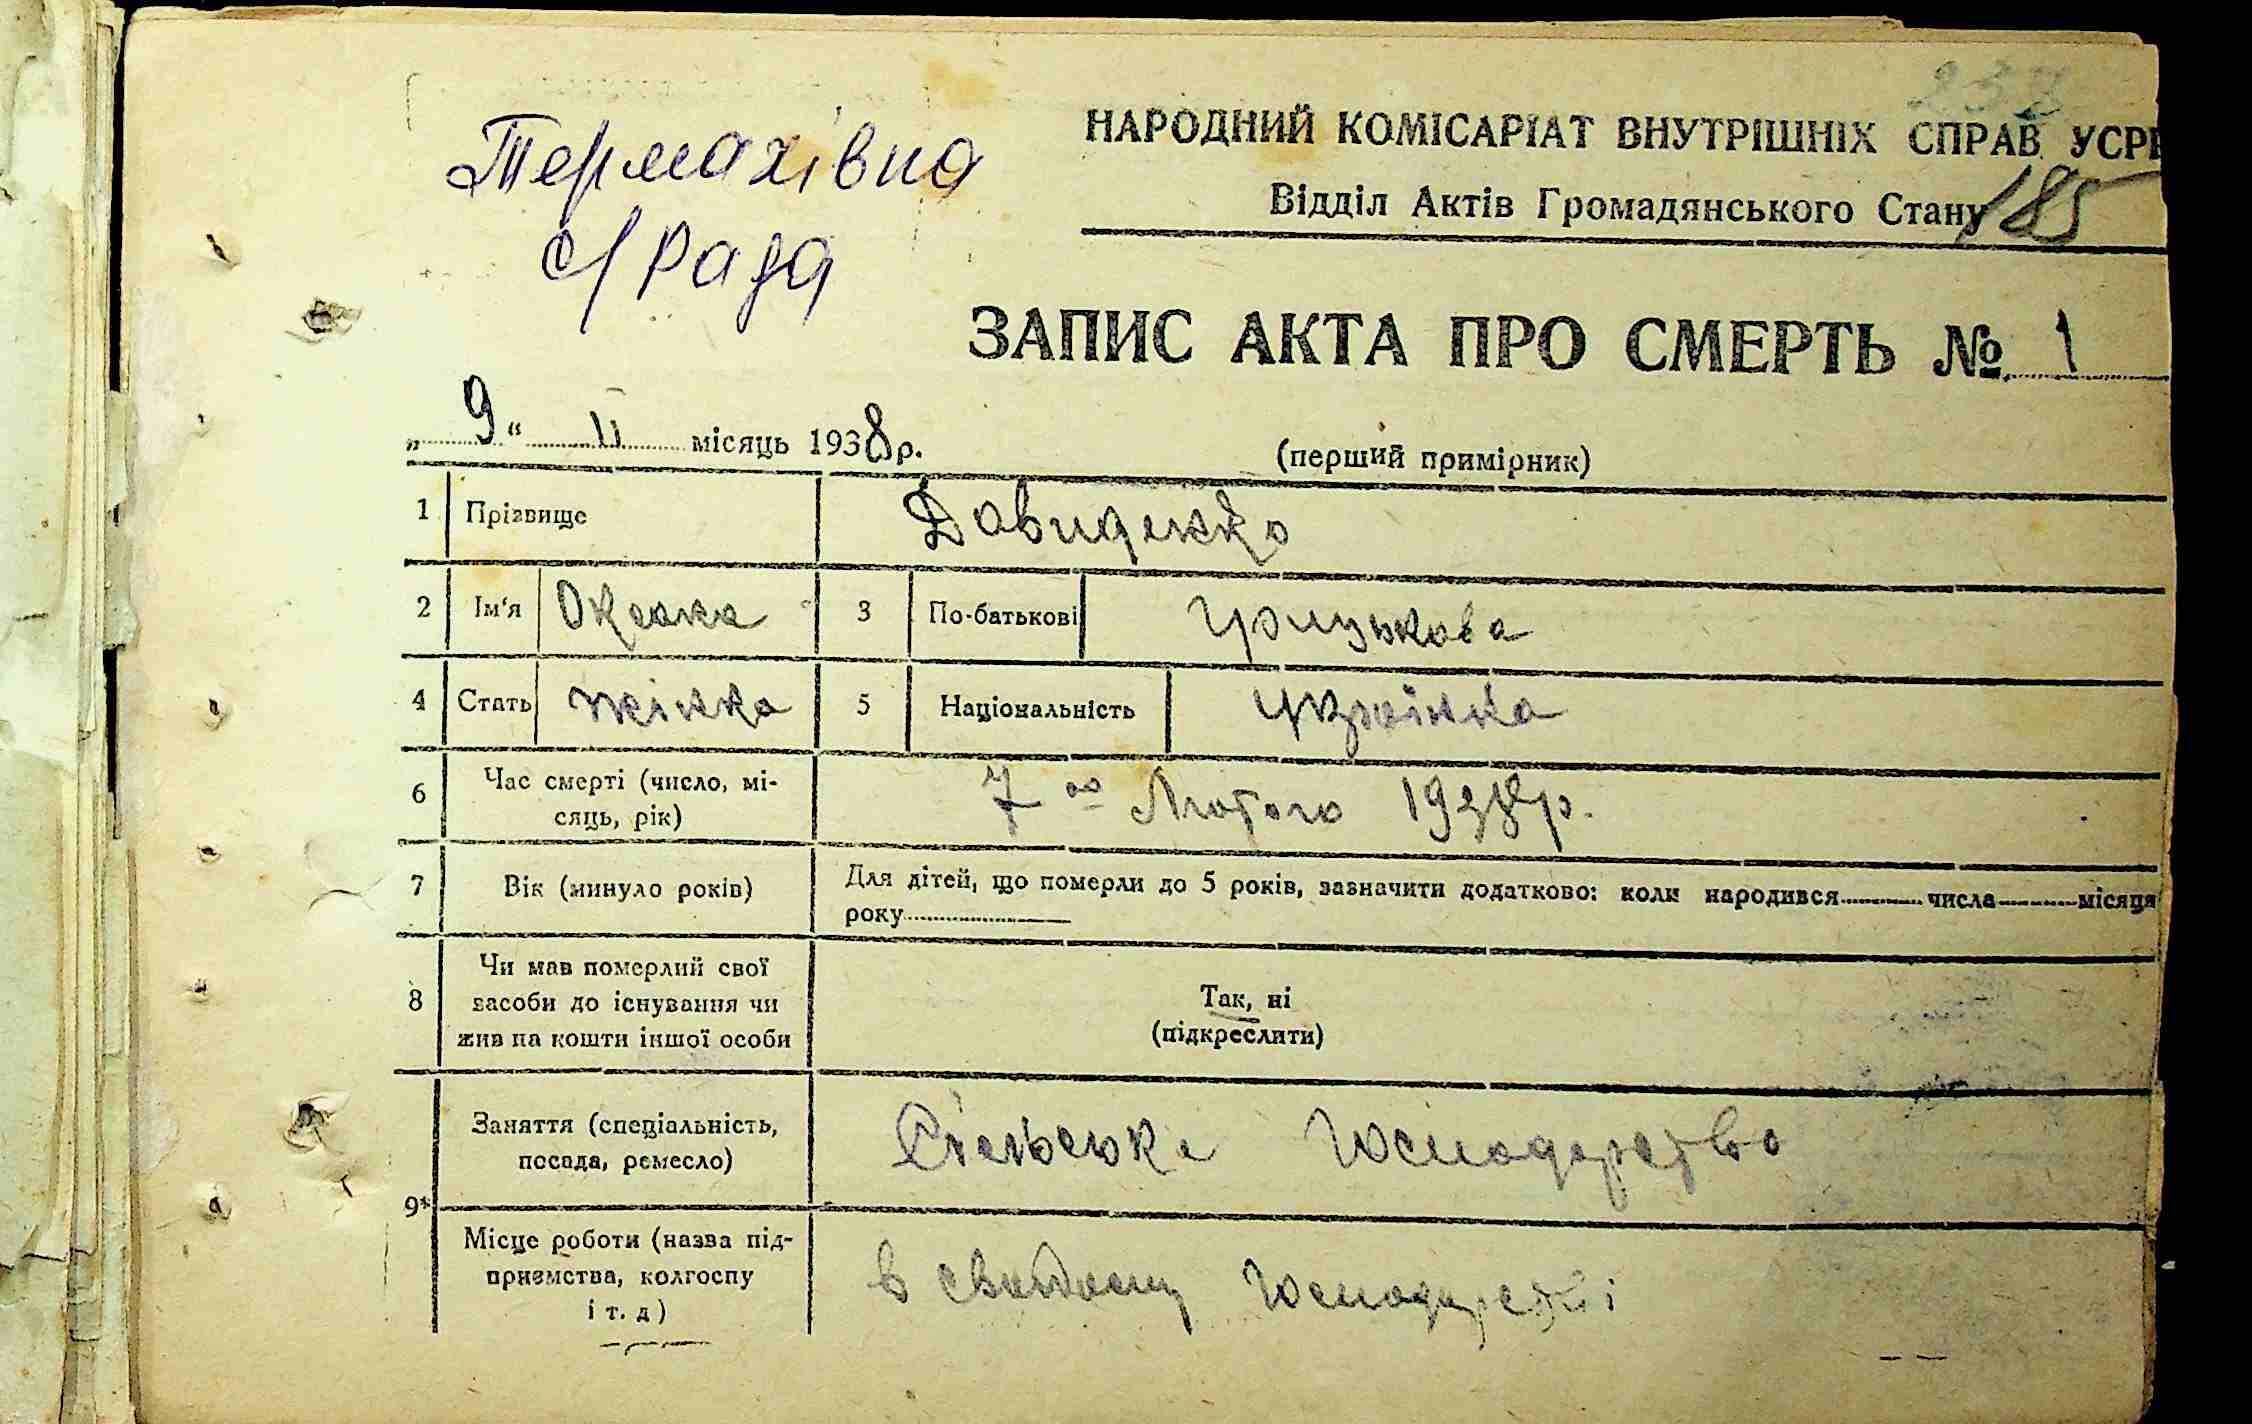 237
НАРОДНИЙ КОМІСАРІАТ ВНУТРІШНІХ СПРАВ УСРР
Відділ Актів Громадянського Стану
185
Термахівна
с/рада
ЗАПИС АКТА ПРО СМЕРТЬ № 1
„ 9 “ II місяць 1938 р.
(перший примірник)
1 Прізвище Давиденко
2 Ім'я Оксана 3 По-батькові Грицькова
4 Стать жінка 5 Національність Українка
6 Час смерті (число, мі-
сяць, рік)
7 го Лютого 1938 р.
7 Вік (минуло років) Для дітей, що померли до 5 років, зазначити додатково: коли народився числа місяця
року
8 Чи мав померлий свої
засоби до існування чи
жив на кошти іншої особи
Так, ні
(підкреслити)
9* Заняття (спеціальність,
посада, ремесло)
Сільське Господарство
Місце роботи (назва під-
приємства, колгоспу
і т. д)
в свойому Господарстві